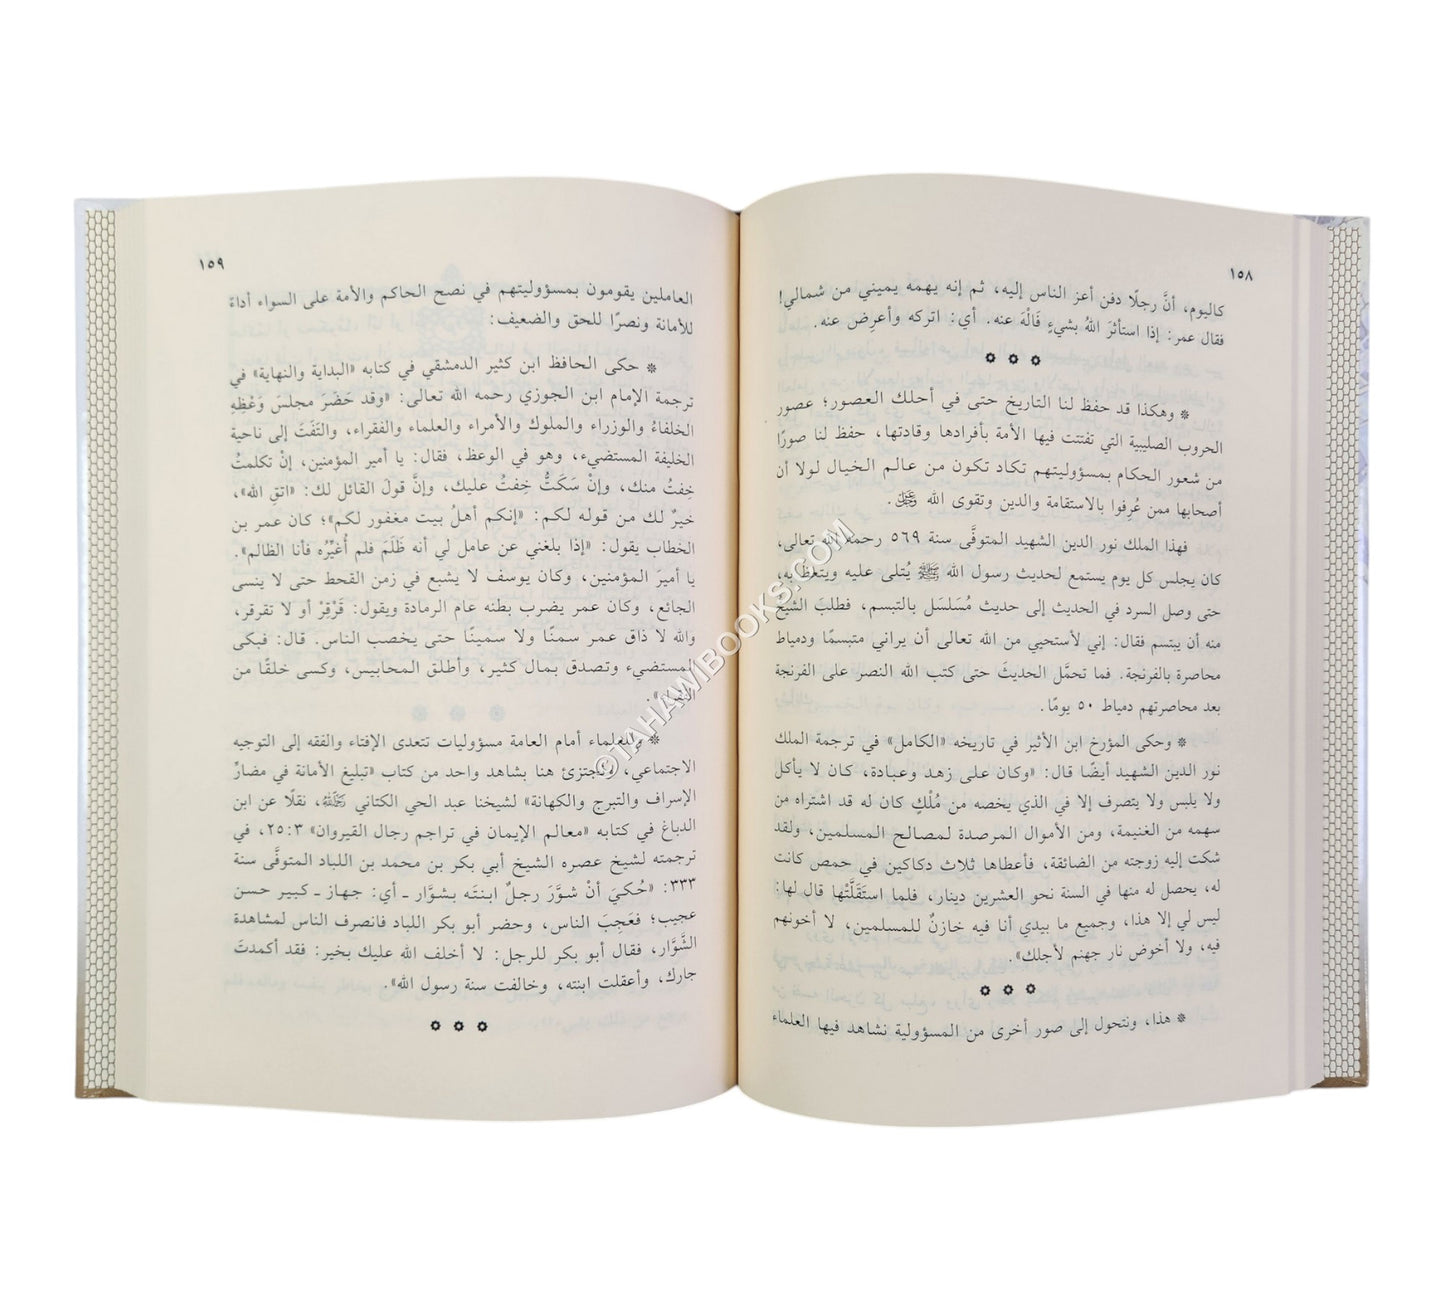 ١٥٨
كاليوم، أنَّ رجلًا دفن أعز الناس إليه، ثم إنه يهمه يميني من شمالي!
فقال عمر: إذا استأثرَ اللهُ بشيءٍ فَالْهَ عنه. أي: اتركه وأعرِض عنه.
* وهكذا قد حفظ لنا التاريخ حتى في أحلك العصور؛ عصور
الحروب الصليبية التي تفتتت فيها الأمة بأفرادها وقادتها، حفظ لنا صورًا
من شعور الحكام بمسؤوليتهم تكاد تكون من عالم الخيال لولا أن
أصحابها ممن عُرِفوا بالاستقامة والدين وتقوى الله ﷿.
فهذا الملك نور الدين الشهيد المتوفَّى سنة ٥٦٩ رحمه الله تعالى،
كان يجلس كل يوم يستمع لحديث رسول الله ﷺ يُتلى عليه ويتعظ به،
حتى وصل السرد في الحديث إلى حديث مُسَلسَل بالتبسم، فطلبَ الشيخ
منه أن يبتسم فقال: إني لأستحيي من الله تعالى أن يراني متبسمًا ودمياط
محاصرة بالفرنجة. فما تحمَّل الحديثَ حتى كتب الله النصر على الفرنجة
بعد محاصرتهم دمياط ٥٠ يومًا.
* وحكى المؤرخ ابن الأثير في تاريخه «الكامل» في ترجمة الملك
نور الدين الشهيد أيضًا قال: «وكان على زهد وعبادة، كان لا يأكل
ولا يلبس ولا يتصرف إلا في الذي يخصه من مُلْكٍ كان له قد اشتراه من
سهمه من الغنيمة، ومن الأموال المرصدة لمصالح المسلمين، ولقد
شكت إليه زوجته من الضائقة، فأعطاها ثلاث دكاكين في حمص كانت
له، يحصل له منها في السنة نحو العشرين دينار، فلما استَقَلَّتْها قال لها:
ليس لي إلا هذا، وجميع ما بيدي أنا فيه خازنٌ للمسلمين، لا أخونهم
فيه، ولا أخوض نار جهنم لأجلك».
* هذا، ونتحول إلى صور أخرى من المسؤولية نشاهد فيها العلماء
١٥٩
العاملين يقومون بمسؤوليتهم في نصح الحاكم والأمة على السواء أداءً
للأمانة ونصرًا للحق والضعيف:
* حكى الحافظ ابن كثير الدمشقي في كتابه «البداية والنهاية» في
ترجمة الإمام ابن الجوزي رحمه الله تعالى: «وقد حَضَرَ مجلسَ وَعْظِهِ
الخلفاءُ والوزراء والملوك والأمراء والعلماء والفقراء، والتَفَتَ إلى ناحية
الخليفة المستضيء، وهو في الوعظ، فقال: يا أمير المؤمنين، إنْ تكلمتُ
خِفتُ منك، وإنْ سَكَتُّ خِفتُ عليك، وإنَّ قولَ القائل لك: «اتقِ الله»،
خيرٌ لك من قوله لكم: «إنكم أهلُ بيت مغفور لكم»؛ كان عمر بن
الخطاب يقول: «إذا بلغني عن عامل لي أنه ظَلَمَ فلم أُغيِّرُه فأنا الظالم».
يا أميرَ المؤمنين، وكان يوسف لا يشبع في زمن القحط حتى لا ينسى
الجائع، وكان عمر يضرب بطنه عام الرمادة ويقول: قَرْقِرْ أو لا تقرقر،
والله لا ذاق عمر سمنًا ولا سمينًا حتى يخصب الناس. قال: فبكى
المستضيء وتصدق بمال كثير، وأطلق المحابيس، وكسى خلقًا من
الفقراء».
* وللعلماء أمام العامة مسؤوليات تتعدى الإفتاء والفقه إلى التوجيه
الاجتماعي، ولنجتزئ هنا بشاهد واحد من كتاب «تبليغ الأمانة في مضارِّ
الإسراف والتبرج والكهانة» لشيخنا عبد الحي الكتاني رَحِمَهُ اللهُ، نقلًا عن ابن
الدباغ في كتابه «معالم الإيمان في تراجم رجال القيروان» ٢٥:٣، في
ترجمته لشيخ عصره الشيخ أبي بكر بن محمد بن اللباد المتوفَّى سنة
٣٣٣: «حُكيَ أنْ شوَّرَ رجلٌ ابنتَه بشوَّار ـ أي: جهاز ـ كبير حسن
عجيب؛ فعَجِبَ الناس، وحضر أبو بكر اللباد فانصرف الناس لمشاهدة
الشَّوَّار، فقال أبو بكر للرجل: لا أخلف الله عليك بخير: فقد أكمدتَ
جارك، وأعقلت ابنته، وخالفت سنة رسول الله».
©TAHAWIBOOKS.COM